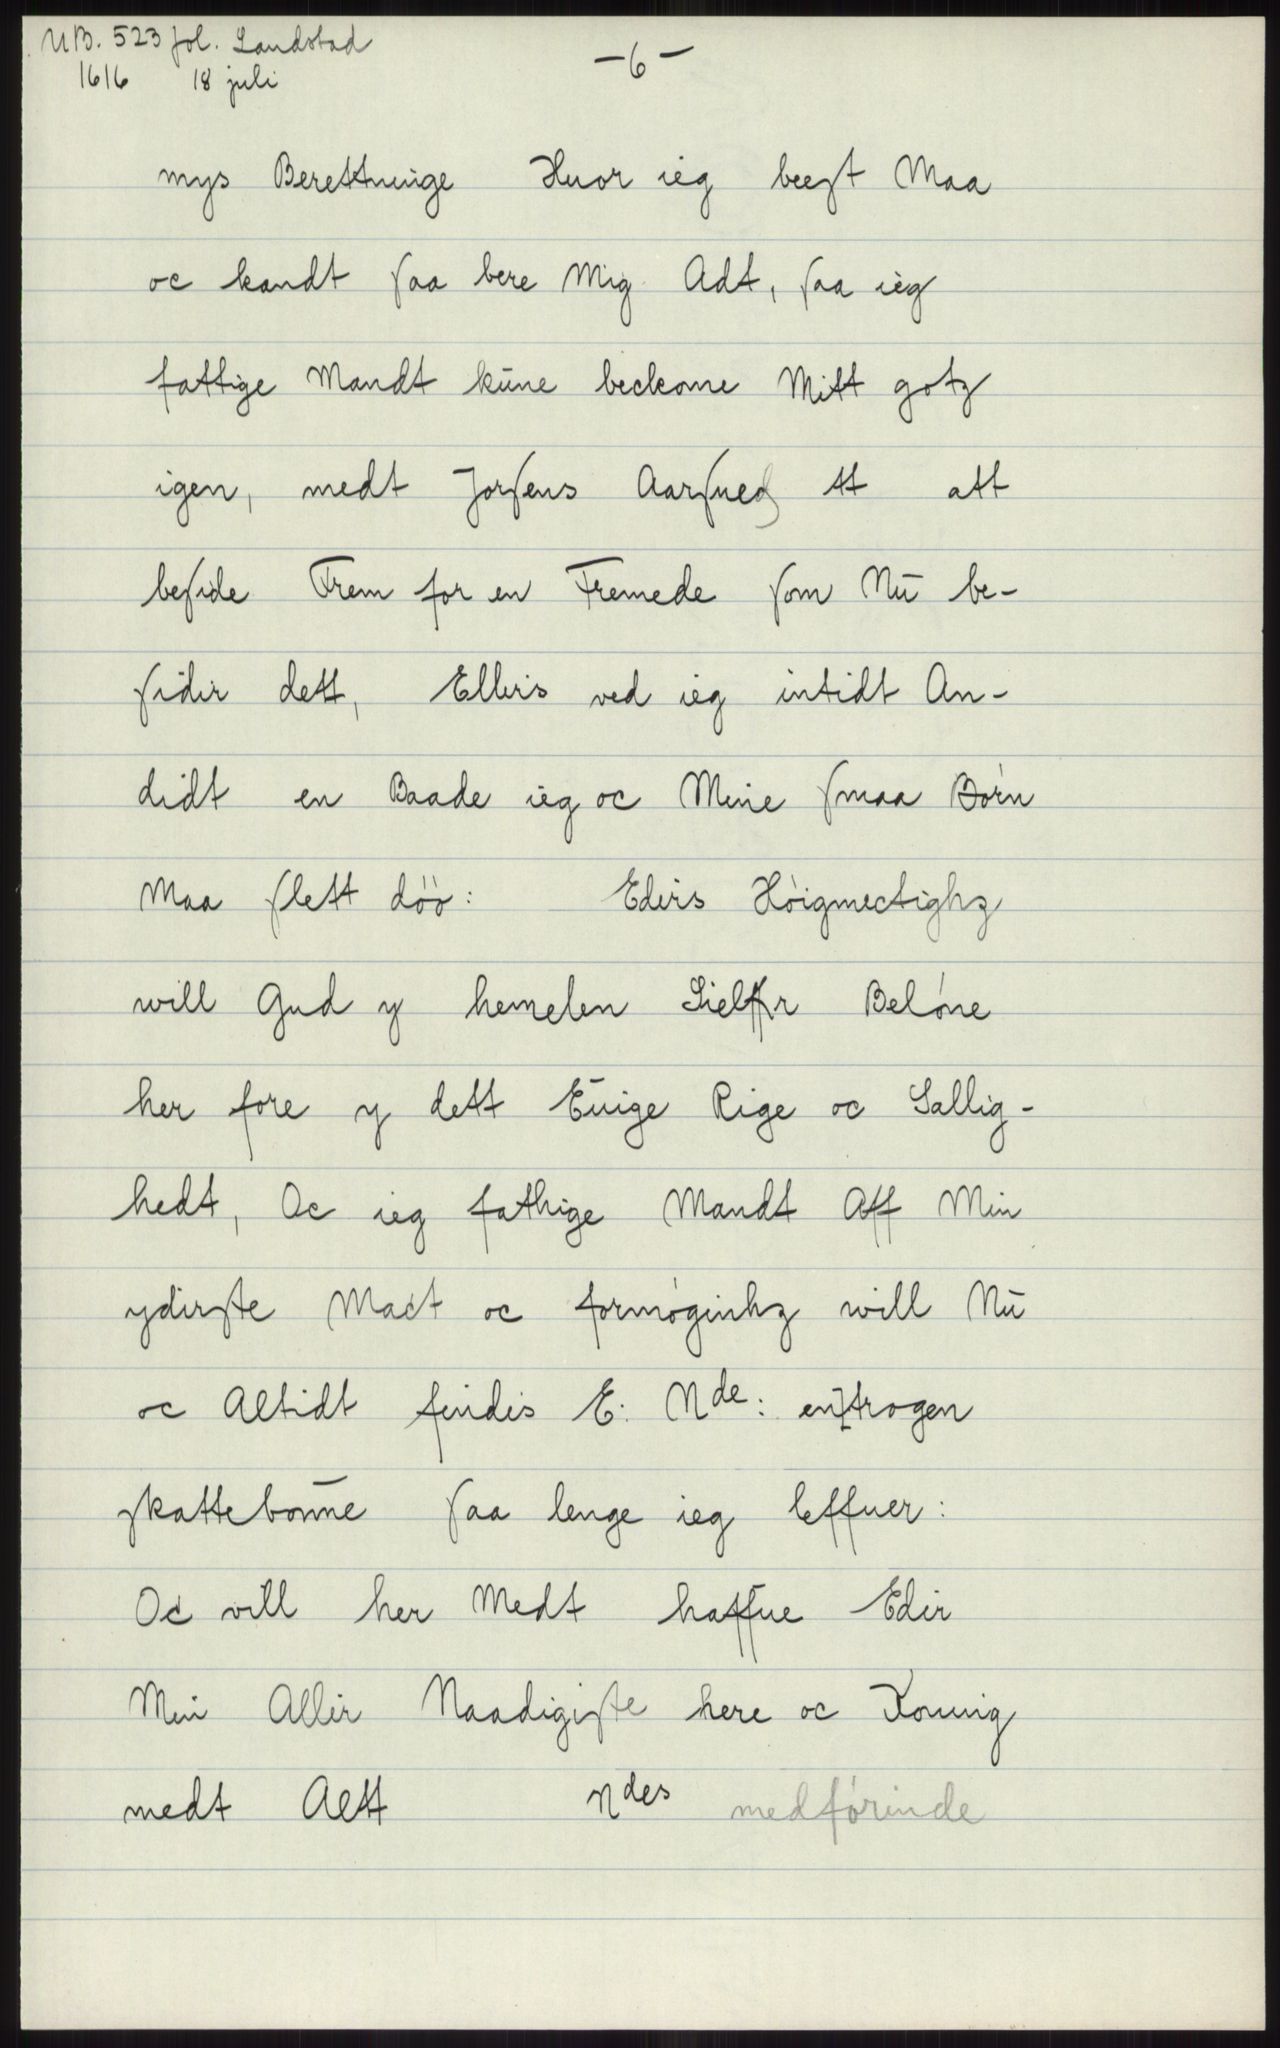 UB. 523 fol. Landstad
-6-
1616 18 juli
mys Berettninge Huor ieg beest Maa
oc kandt saa bere Mig Adt, saa ieg
fattige Mandt kūne beckome Mitt gotz
igen, medt Jorsens Aarsued tt att
beside Frem for en Fremede som Nū be-
sidir dett, Elleris ved ieg intidt An-
didt en Baade ieg oc Mine smaa Børn
Maa slett døø: Ederis Høigmectighz
will Gud y hemelen Sielffr Beløne
her fore y dett Ēuige Rige oc Sallig-
hedt, Oc ieg fathige Mandt Aff Min
ydirste Mact oc formøginhz will Nū
oc Altidt findis E. Nde: en trogen
skattebonne saa lenge ieg leffuer:
Oc vill her Medt haffue Edir
Min Allir Naadigiste here oc Konnig
medt Altt Ndes medførinde